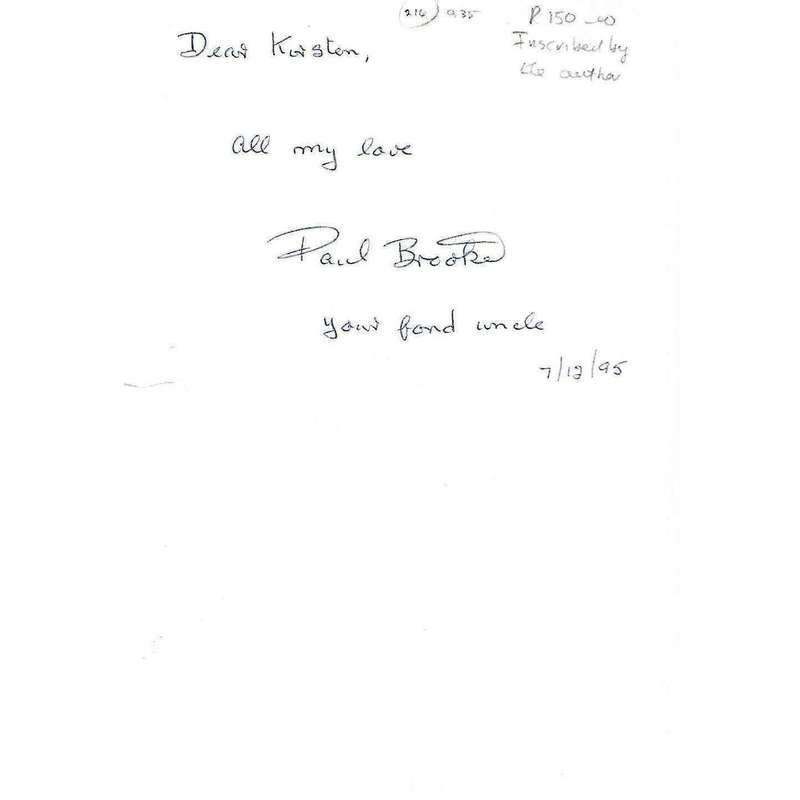 (216) 935
R 150-00
Inscribed by
the author
Dear Kirsten,
All my love
Paul Brooke
Your fond uncle
7/12/95